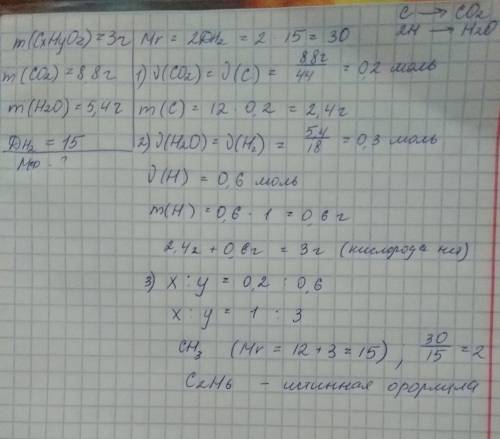 C → CO2
2H → H2O
m(CxHyOz)=3г
m(CO2)=8,8г
m(H2O)=5,4г
DH2 = 15
Мф - ?
Mr = 2DH2 = 2 · 15 = 30
1) ν(CO2) = ν(C) = 8,8г/44 = 0,2 моль
m(C) = 12 · 0,2 = 2,4г
2) ν(H2O) = ν(H2) = 5,4/18 = 0,3 моль
ν(H) = 0,6 моль
m(H) = 0,6 · 1 = 0,6г
2,4г + 0,6г = 3г (кислорода нет)
3) x : y = 0,2 : 0,6
x : y = 1 : 3
CH3 (Mr = 12 + 3 = 15), 30/15 = 2
C2H6 - истинная формула